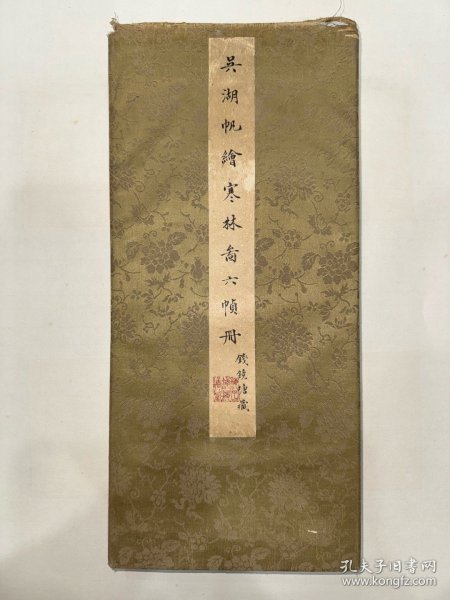 吳湖帆繪寒林啚六幀冊
錢鏡塘藏
孔夫子旧书网
www.kongfz.com